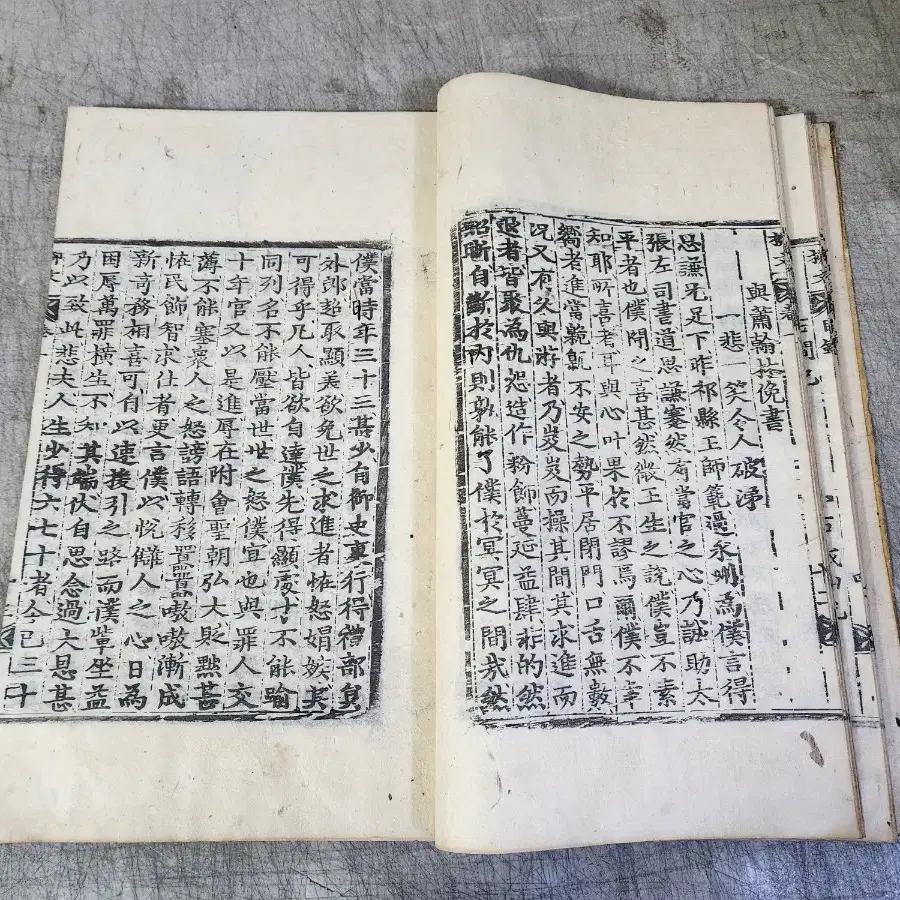 與蕭翰林俛書
一悲一笑令人破涕
思謙兄足下昨祁縣王師範過永州為僕言得
張左司書道思謙蹇然有當官之心乃誠助太
平者也僕聞之喜甚然微王生之說僕豈不素
知耶所喜者耳與心叶果於不謬焉爾僕不幸
嚮者進當臲卼不安之勢平居閉門口舌無數
况又有久與游者乃岌岌而操其間其求進而
退者皆聚為仇怨造作粉飾蔓延益肆非的然
昭晰自斷於內則孰能了僕於冥冥之間哉然
僕當時年三十三甚少自御史裏行得禮部員
外郎超取顯美欲免世之求進者怪怒娟嫉其
可得乎凡人皆欲自達僕先得顯處才不能踰
同列名不能壓當世世之怒僕宜也與罪人交
十年官又以是進辱在附會聖朝弘大貶黜甚
薄不能塞衆人之怒謗語轉移囂囂嗷嗷漸成
怪民飾智求仕者更言僕以悅讎人之心日為
新奇務相喜可自以速援引之路而僕輩坐益
困辱萬罪橫生不知其端伏自思念過大恩甚
乃以致此悲夫人生少得六七十者今已三十